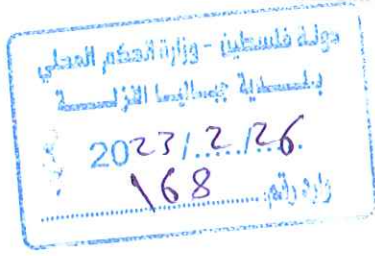 دولة فلسطين - وزارة الحكم المحلي
بلدية جباليا النزلة
2023/2/26
وارد رقم 168